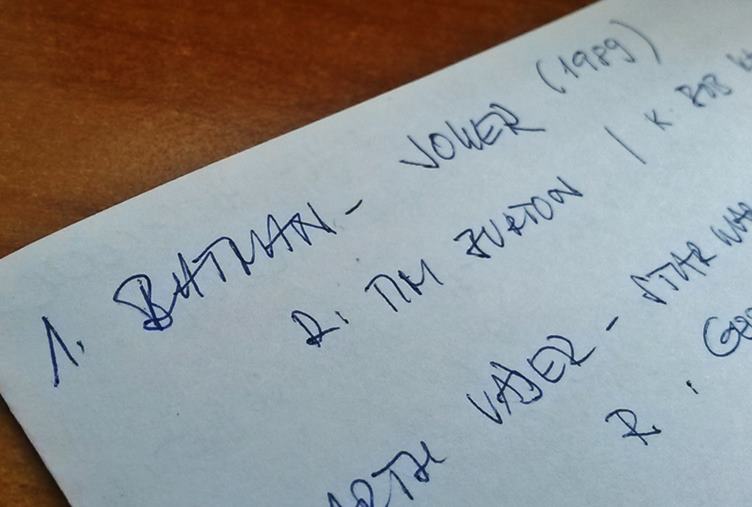 1. BATMAN - JOKER (1989)
R: TIM BURTON / K. BOB
VADER - STAR WAR
R.